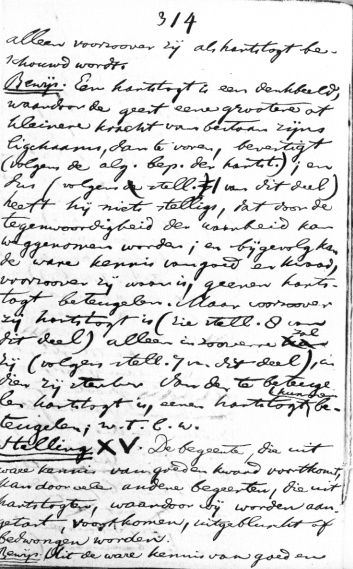 314
alleen voorzoover zij als hartstogt be-
schouwd wordt.
Bewijs. Een hartstogt is een denkbeeld,
waardoor de geest eene grootere of
kleinere kracht van bestaan zijns
ligchaams, dan te voren, bevestigt
(volgens de alg. bep. der hartst.); en
dus (volgens stell. 1 van dit deel)
heeft hij niets stelligs, dat door de
tegenwoordigheid der waarheid kan
weggenomen worden; en bijgevolg kan
de ware kennis van goed en kwaad,
voorzoover zij waar is, geenen harts-
togt beteugelen. Maar voorzoover
zij hartstogt is (zie stell. 8 van
dit deel) alleen in zooverre zal
zij (volgens stell. 7 van dit deel), in-
dien zij sterker dan de te beteuge-
len hartstogt is, eenen hartstogt kunnen be-
teugelen; w. t. b. w.
Stelling XV. De begeerte, die uit
ware kennis van goed en kwaad voortkomt,
kan door vele andere begeerten, die uit
hartstogten, waardoor wij worden aan-
getast, voortkomen, uitgebluscht of
bedwongen worden.
Bewijs. Uit de ware kennis van goed en